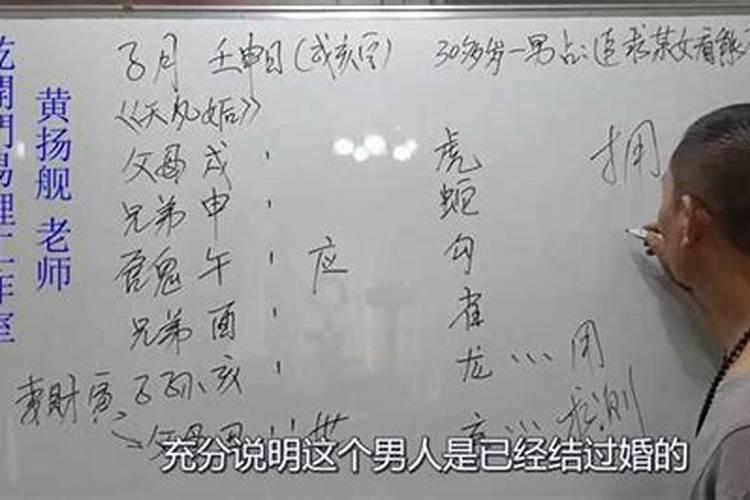 子月 壬申日(戌亥空) 30多岁一男占:追求某女看能
《天风姤》
父母戌、 虎
兄弟申、 蛇
官鬼午、应 勾
兄弟酉、 雀
妻财寅 子孙亥、 龙...用
父母丑 世 玄...
充分说明这个男人是已经结过婚的
乾開門易理工作室
黄扬舰 老师